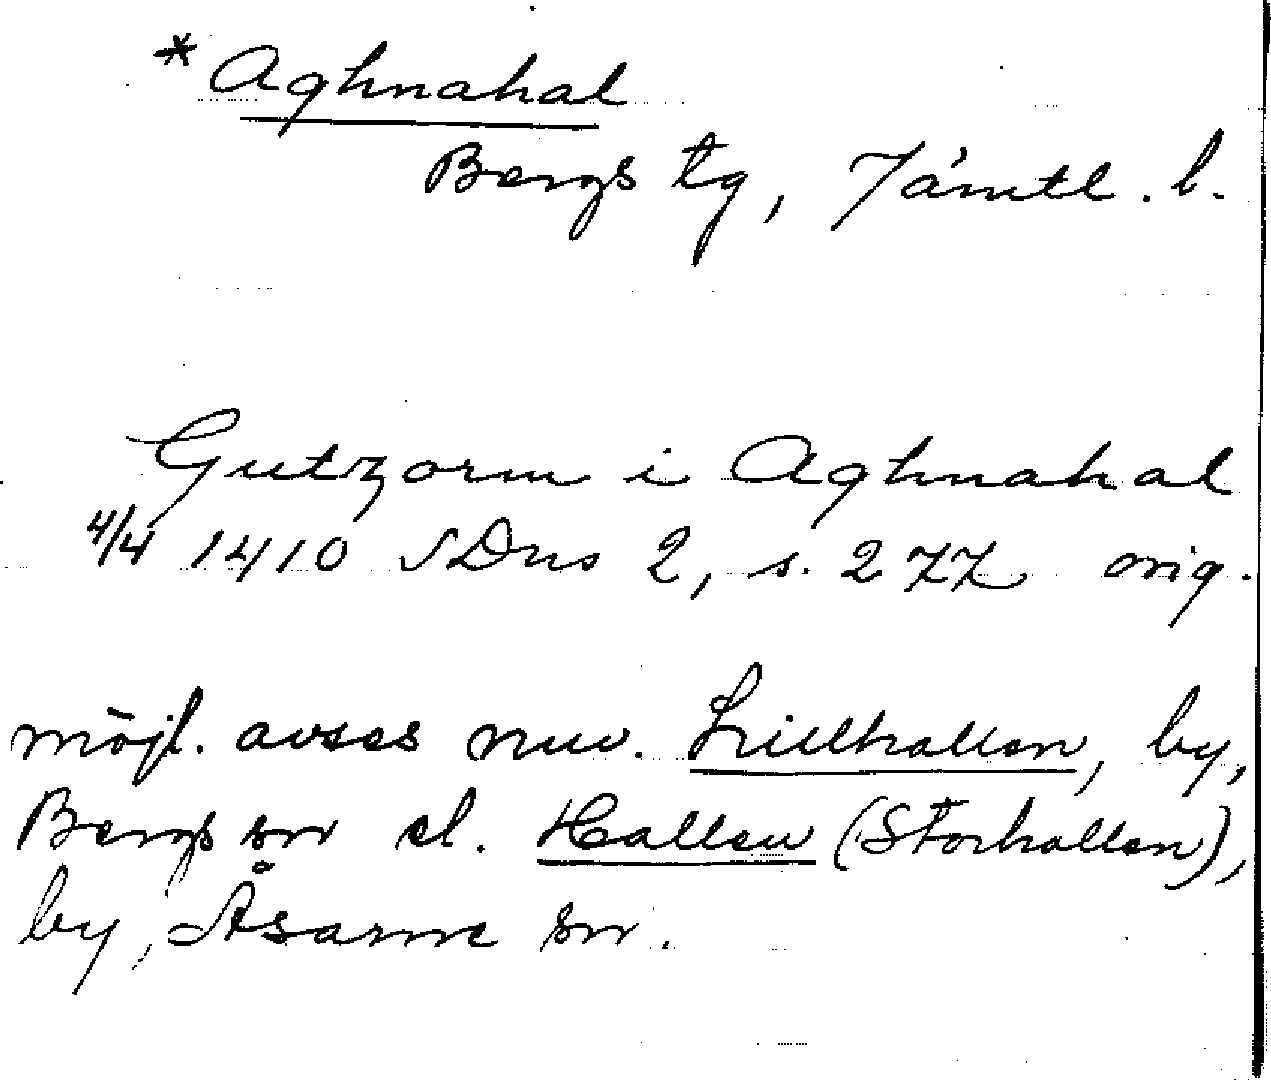 *Aghnahal
Bergs tg, Jämtl. l.
Gutzorm i Aghnahal
4/4 1410 SDns 2, s. 277 orig.
möjl. avses nuv. Lillhallen, by,
Bergs sn el. Hallen (Storhallen),
by, Åsarne sn.